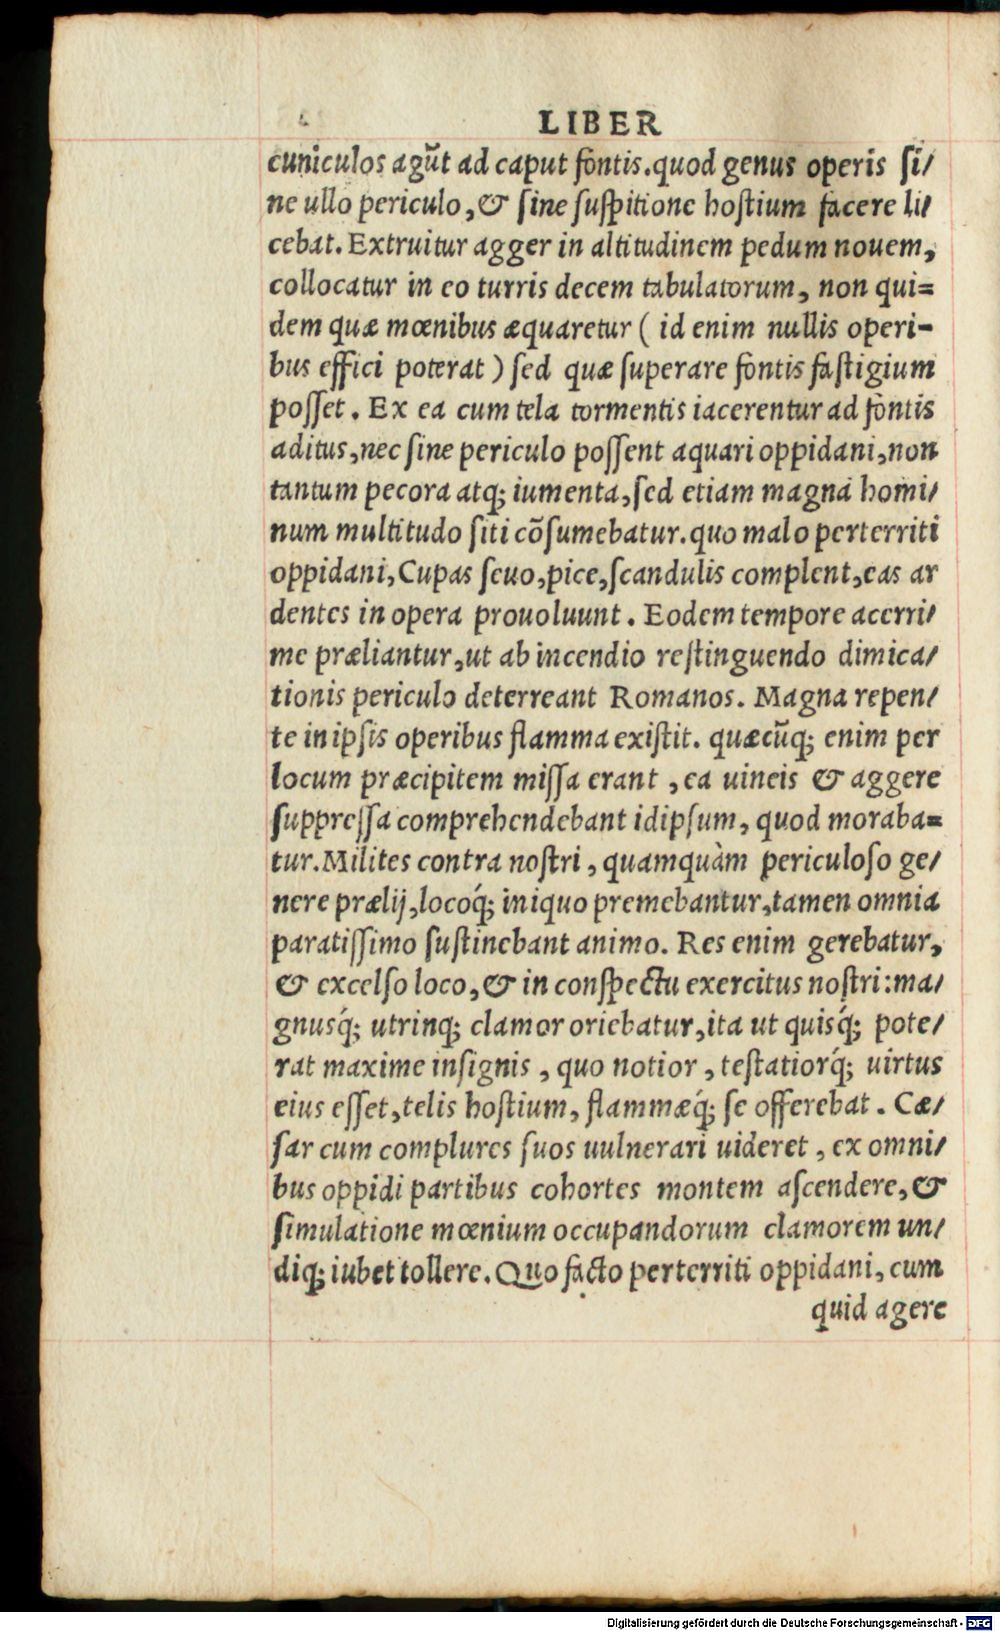 LIBER
cuniculos agũt ad caput fontis.quod genus operis ſi/
ne ullo periculo,& ſine ſuſpitione hoſtium facere li/
cebat. Extruitur agger in altitudinem pedum nouem,
collocatur in eo turris decem tabulatorum, non qui=
dem quæ mœnibus æquaretur ( id enim nullis operi-
bus effici poterat ) ſed quæ ſuperare fontis faſtigium
poſſet. Ex ea cum tela tormentis iacerentur ad fontis
aditus,nec ſine periculo poſſent aquari oppidani,non
tantum pecora atq; iumenta,ſed etiam magna homi/
num multitudo ſiti cõſumebatur.quo malo perterriti
oppidani,Cupas ſeuo,pice,ſcandulis complent,eas ar
dentes in opera prouoluunt. Eodem tempore acerri/
me præliantur,ut ab incendio reſtinguendo dimica/
tionis periculo deterreant Romanos. Magna repen/
te in ipſis operibus flamma exiſtit. quæcũq; enim per
locum præcipitem miſſa erant, ea uineis & aggere
ſuppreſſa comprehendebant idipſum, quod moraba=
tur.Milites contra noſtri, quamquàm periculoſo ge/
nere prælij,locoq́; iniquo premebantur,tamen omnia
paratiſſimo ſuſtinebant animo. Res enim gerebatur,
& excelſo loco,& in conſpectu exercitus noſtri:ma/
gnusq́; utrinq; clamor oriebatur,ita ut quisq́; pote/
rat maxime inſignis, quo notior, teſtatiorq́; uirtus
eius eſſet,telis hoſtium, flammæq́; ſe offerebat. Cæ/
ſar cum complures ſuos uulnerari uideret, ex omni/
bus oppidi partibus cohortes montem aſcendere,&
ſimulatione mœnium occupandorum clamorem un/
diq; iubet tollere. Quo facto perterriti oppidani, cum
quid agere
Digitalisierung gefördert durch die Deutsche Forschungsgemeinschaft - DFG